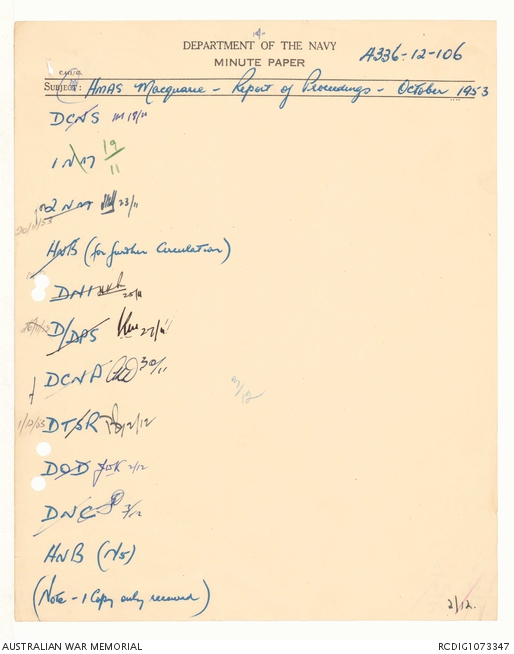 DEPARTMENT OF THE NAVY
MINUTE PAPER
A336-12-106
SUBJECT: HMAS Macquarie - Report of Proceedings - October 1953
DCNS 19/11
1 NM 19/11
2 NM 23/11
20/11/53
HNB (for further Circulation)
DNI 25/11
D/DPS 27/11
DCNA 30/11
1/12/53
DTSR 2/12
DOD 2/12
DNC 3/12
HNB (N5)
(Note - 1 Copy only received)
2/12.
AUSTRALIAN WAR MEMORIAL
RCDIG1073347